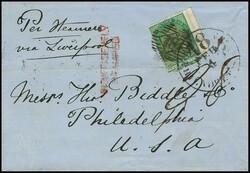 Per Steamer
via Liverpool
Messrs. Tho. Biddle & Co
Philadelphia
U. S. A